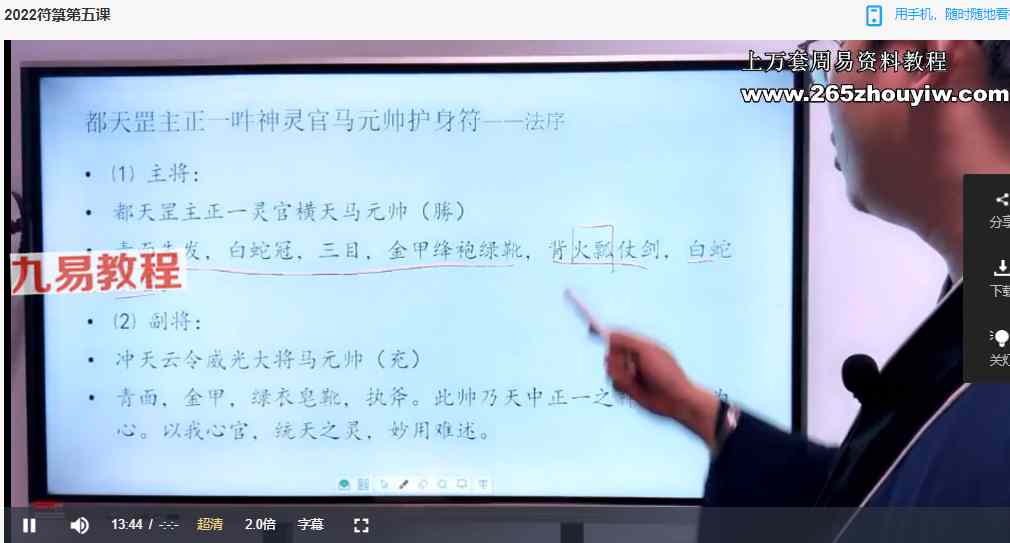 2022符箓第五课
用手机，随时随地看
上万套周易资料教程
www.265zhouyiw.com
都天罡主正一吽神灵官马元帅护身符——法序
• (1) 主将：
• 都天罡主正一灵官横天马元帅（勝）
发，白蛇冠，三目，金甲绛袍绿靴，背火瓢仗剑，白蛇
九易教程
• (2) 副将：
• 冲天云令威光大将马元帅（充）
• 青面，金甲，绿衣皂靴，执斧。此帅乃天中正一之 为
心。以我心官，统天之灵，妙用难述。
分享
下载
关灯
13:44 / -:-:- 超清 2.0倍 字幕